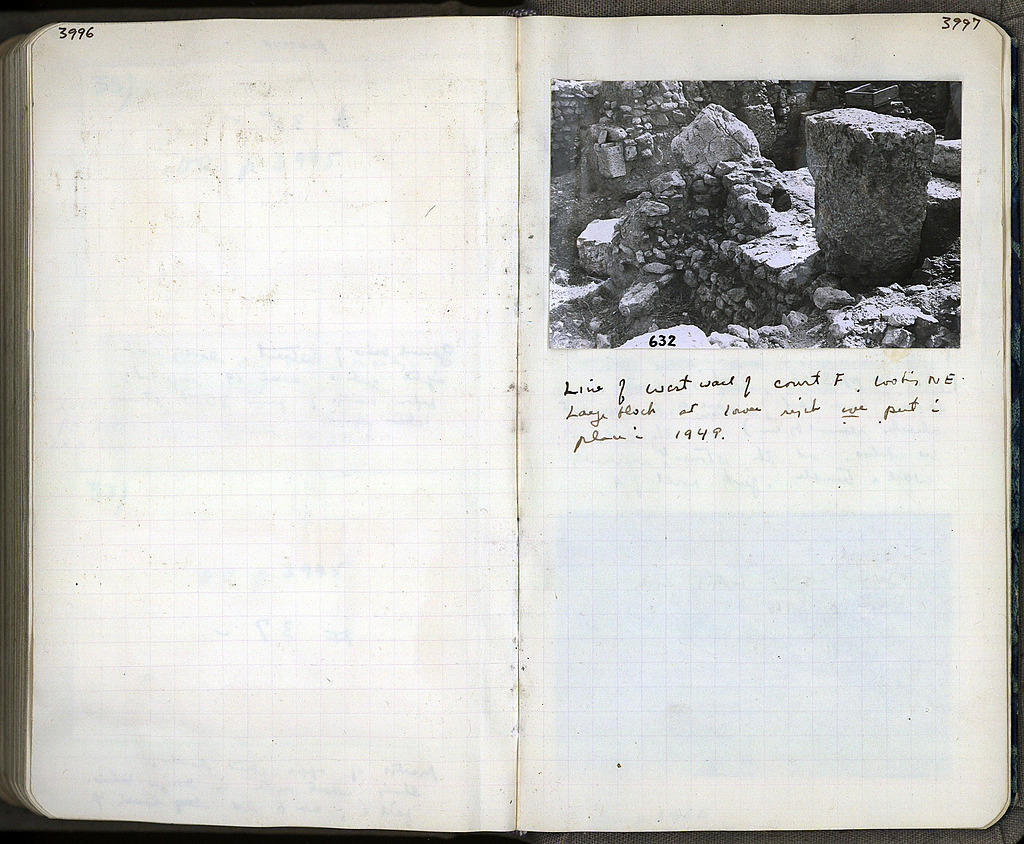 3996
3997
632
Line of west wall of court F, looking NE.
Large block at lower right we put in
place in 1949.